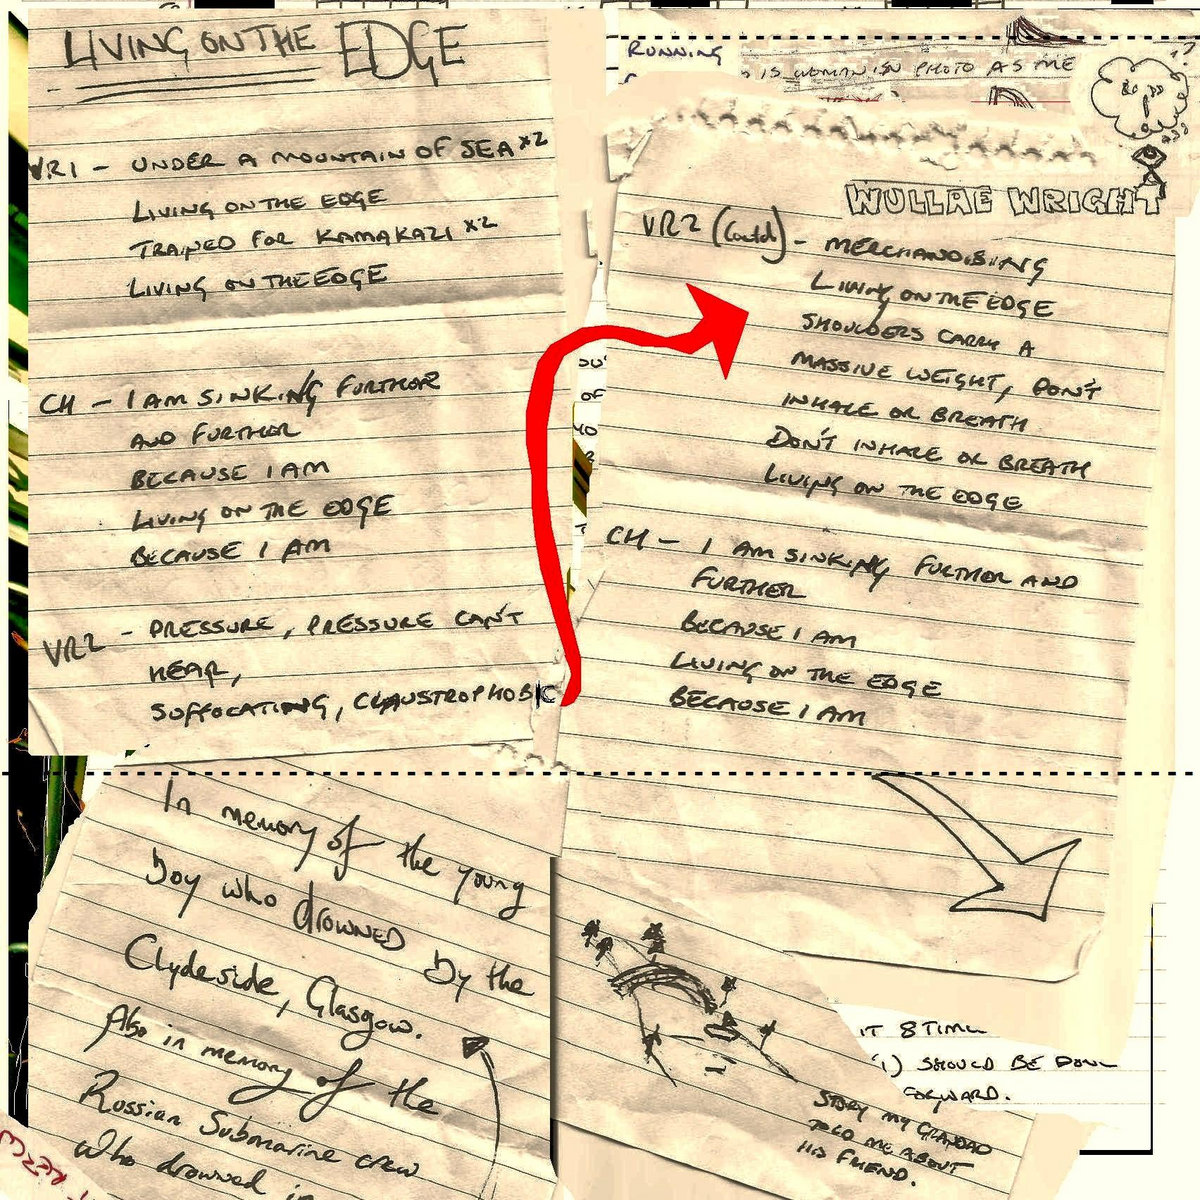 LIVING ON THE EDGE
VR1 - UNDER A MOUNTAIN OF SEA x2
LIVING ON THE EDGE
TRAINED FOR KAMAKAZI x2
LIVING ON THE EDGE
CH - I AM SINKING FURTHER
AND FURTHER
BECAUSE I AM
LIVING ON THE EDGE
BECAUSE I AM
VR2 - PRESSURE, PRESSURE CAN'T
HEAR,
SUFFOCATING, CLAUSTROPHOBIC
RUNNING
IS WOMAN IN PHOTO AS ME
WULLAE WRIGHT
VR2 (Contd) - MERCHANDISING
LIVING ON THE EDGE
SHOULDERS CARRY A
MASSIVE WEIGHT, DON'T
INHALE OR BREATH
DON'T INHALE OR BREATH
LIVING ON THE EDGE
CH - I AM SINKING FURTHER AND
FURTHER
BECAUSE I AM
LIVING ON THE EDGE
BECAUSE I AM
In memory of the young
boy who drowned by the
Clydeside, Glasgow.
Also in memory of the
Russian Submarine crew
who drowned in
IT 8 TIMES
(1) SHOULD BE DONE
FORWARD.
STORY MY GRANDAD
TOLD ME ABOUT
HIS FRIEND.